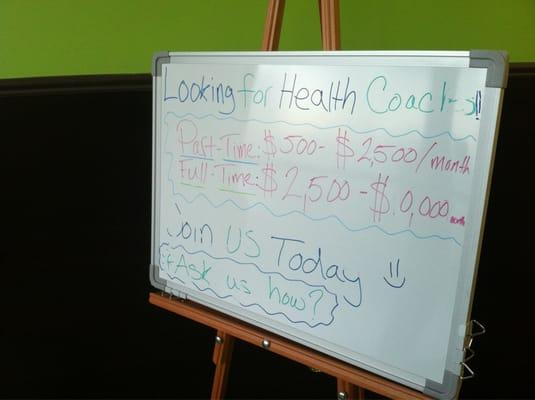 Looking for Health Coaches!!
Part-Time: $500- $2,500/month
Full-Time: $2,500-$10,000/month
Join US Today
*Ask us how?